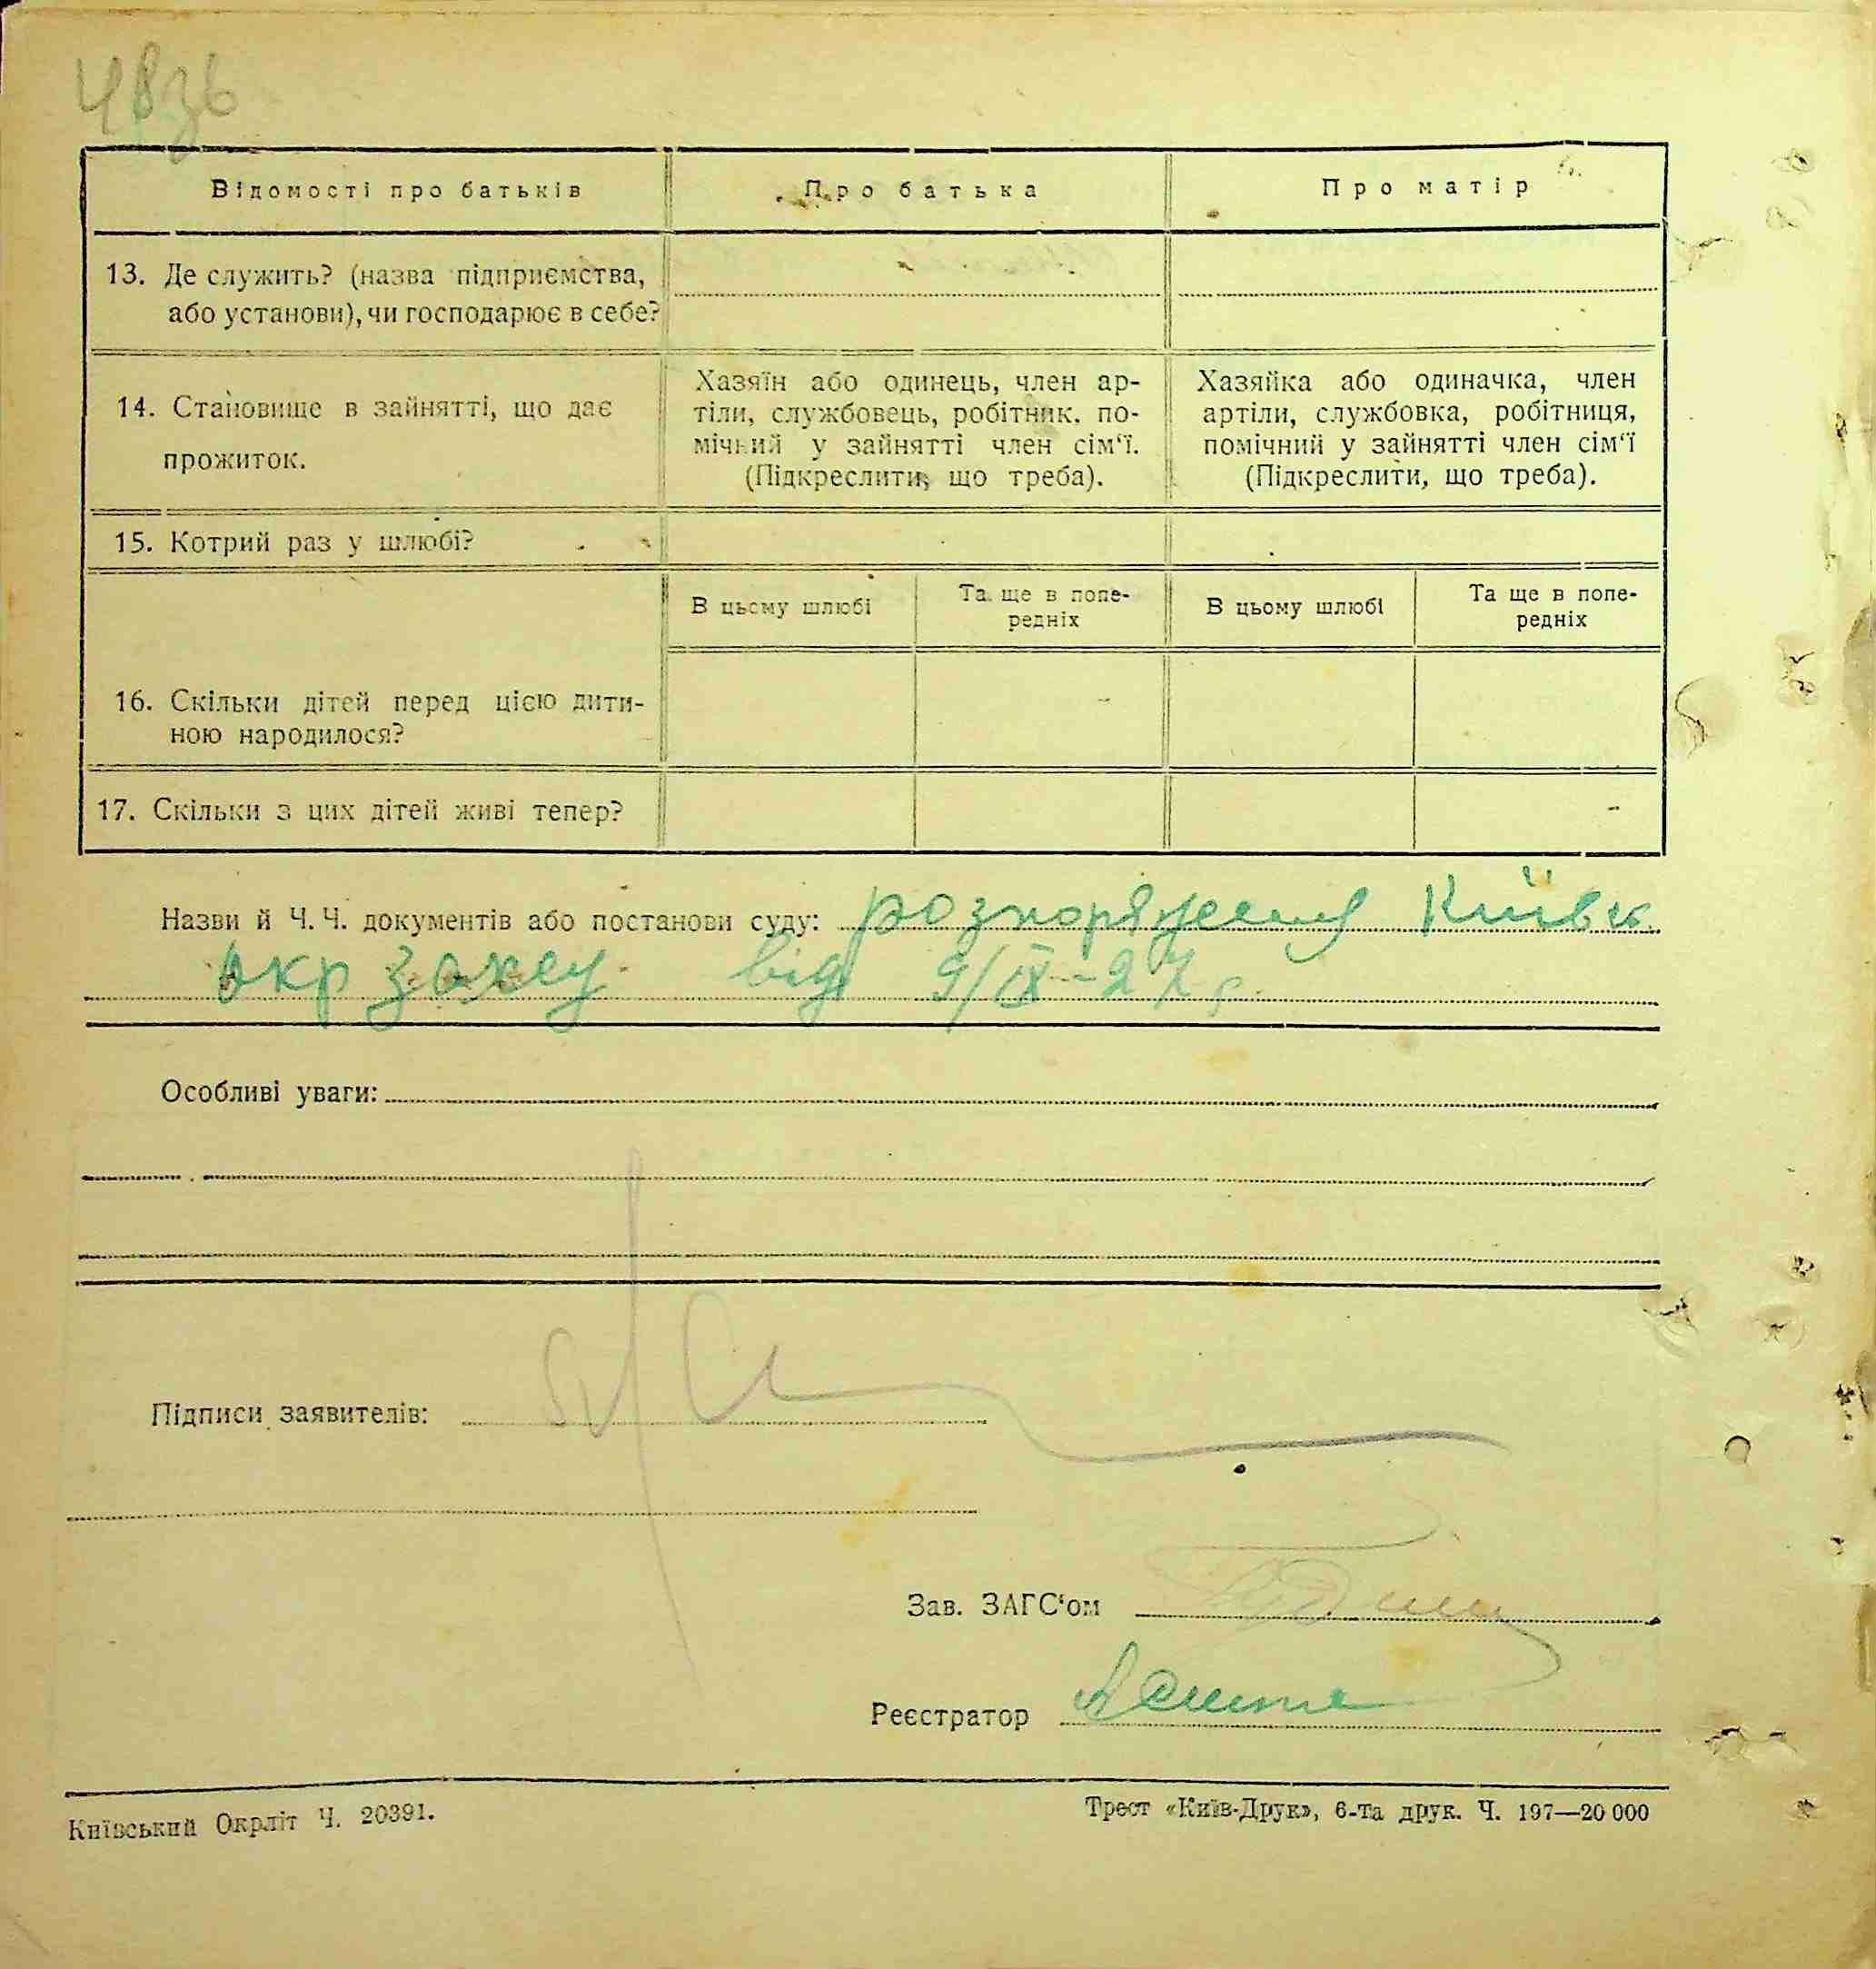 483б
Відомості про батьків
Про батька
Про матір
13. Де служить? (назва підприємства,
або установи), чи господарює в себе?
14. Становище в зайнятті, що дає
прожиток.
Хазяїн або одинець, член ар-
тіли, службовець, робітник, по-
мічний у зайнятті член сім‘ї.
(Підкреслити, що треба).
Хазяйка або одиначка, член
артіли, службовка, робітниця,
помічний у зайнятті член сім‘ї
(Підкреслити, що треба).
15. Котрий раз у шлюбі?
В цьому шлюбі
Та ще в попе-
редніх
В цьому шлюбі
Та ще в попе-
редніх
16. Скільки дітей перед цією дити-
ною народилося?
17. Скільки з цих дітей живі тепер?
Назви й Ч. Ч. документів або постанови суду: розпорядження Київськ.
окр загсу від 9/IX-27 р.
Особливі уваги:
Підписи заявителів:
Зав. ЗАГС‘ом
Реєстратор
Київський Окрліт Ч. 20391.
Трест «Київ-Друк», 6-та друк. Ч. 197—20 000